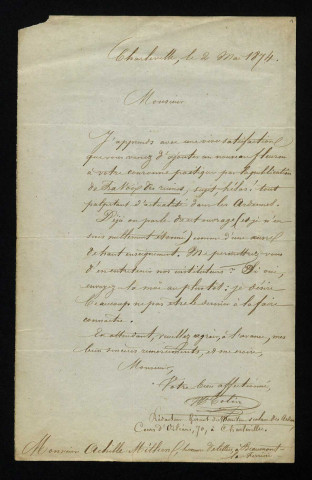 Charleville, le 2 Mai 1874.
Monsieur
J'apprends avec une vive satisfaction
que vous venez d'ajouter un nouveau fleuron
à votre couronne poétique par la publication
de ruines, sujet hélas ! tout
palpitant d'actualité dans les Ardennes.
Déjà on parle de cet ouvrage (et je n'en
suis nullement étonné) comme d'une œuvre
de haut enseignement. Me permettrez-vous
d'en entretenir nos instituteurs ? Si oui,
envoyez-la moi au plus tôt : je désire
beaucoup ne pas être le dernier à la faire
connaître.
En attendant, veuillez agréer, à l'avance, mes
bien sincères remerciements, et me croire,
Monsieur,
Votre bien affectionné,
Rédacteur Gérant du
Cours d'Orléans, 70, à Charleville.
Monsieur Achille Millien, homme de lettres à Beaumont-
la-Ferrière